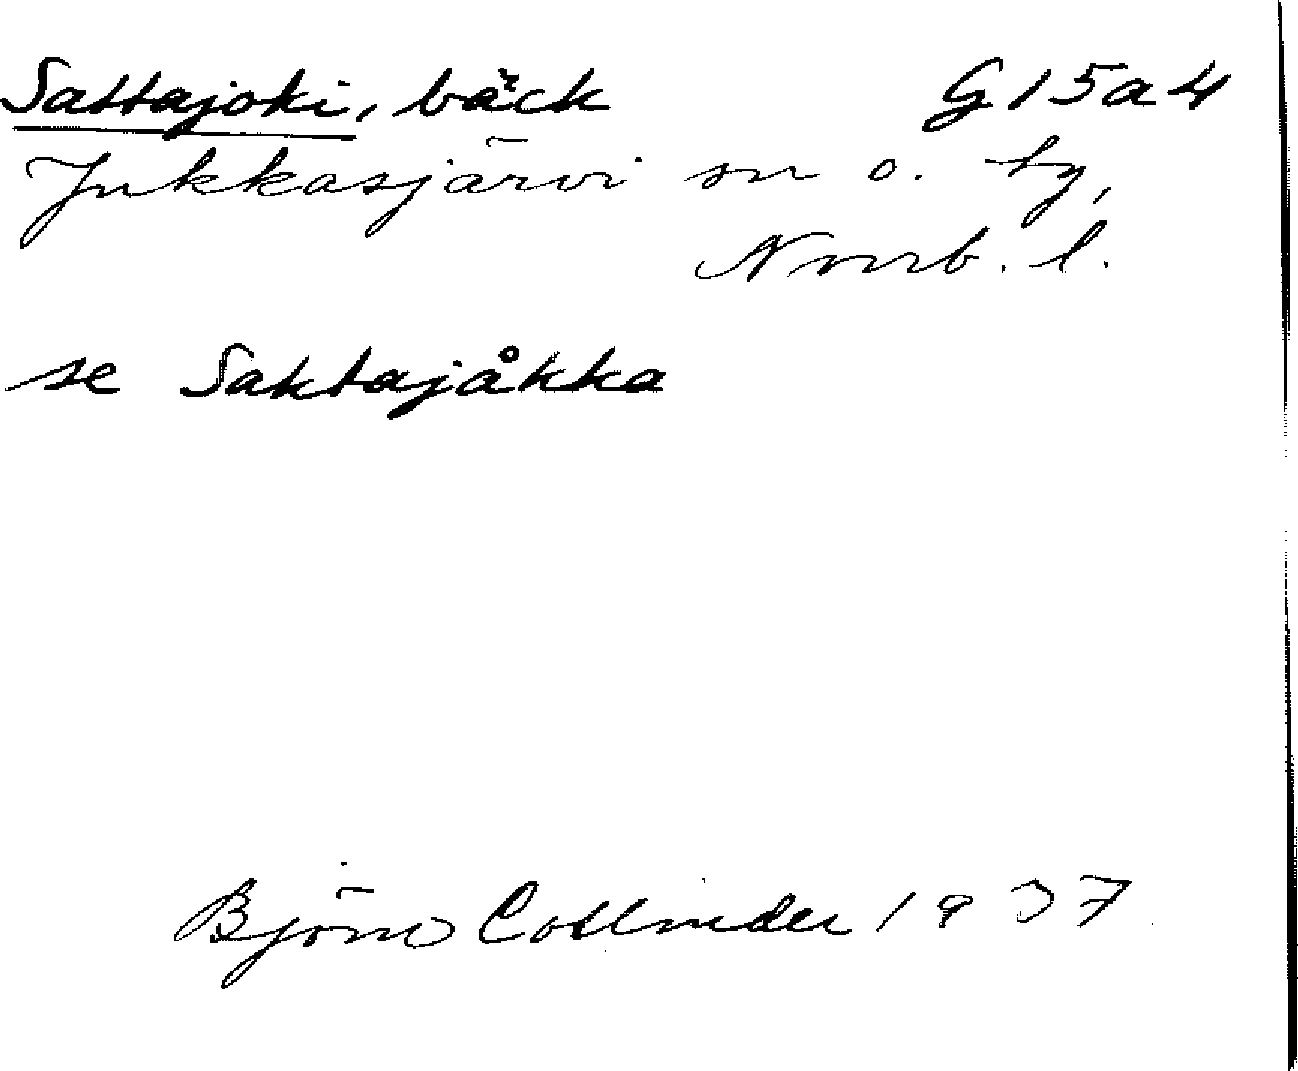 Sattajoki, bäck G15a4
Jukkasjärvi sn o. by,
Norrb. l.
se Saktajåkka
Björn Collinder 1937